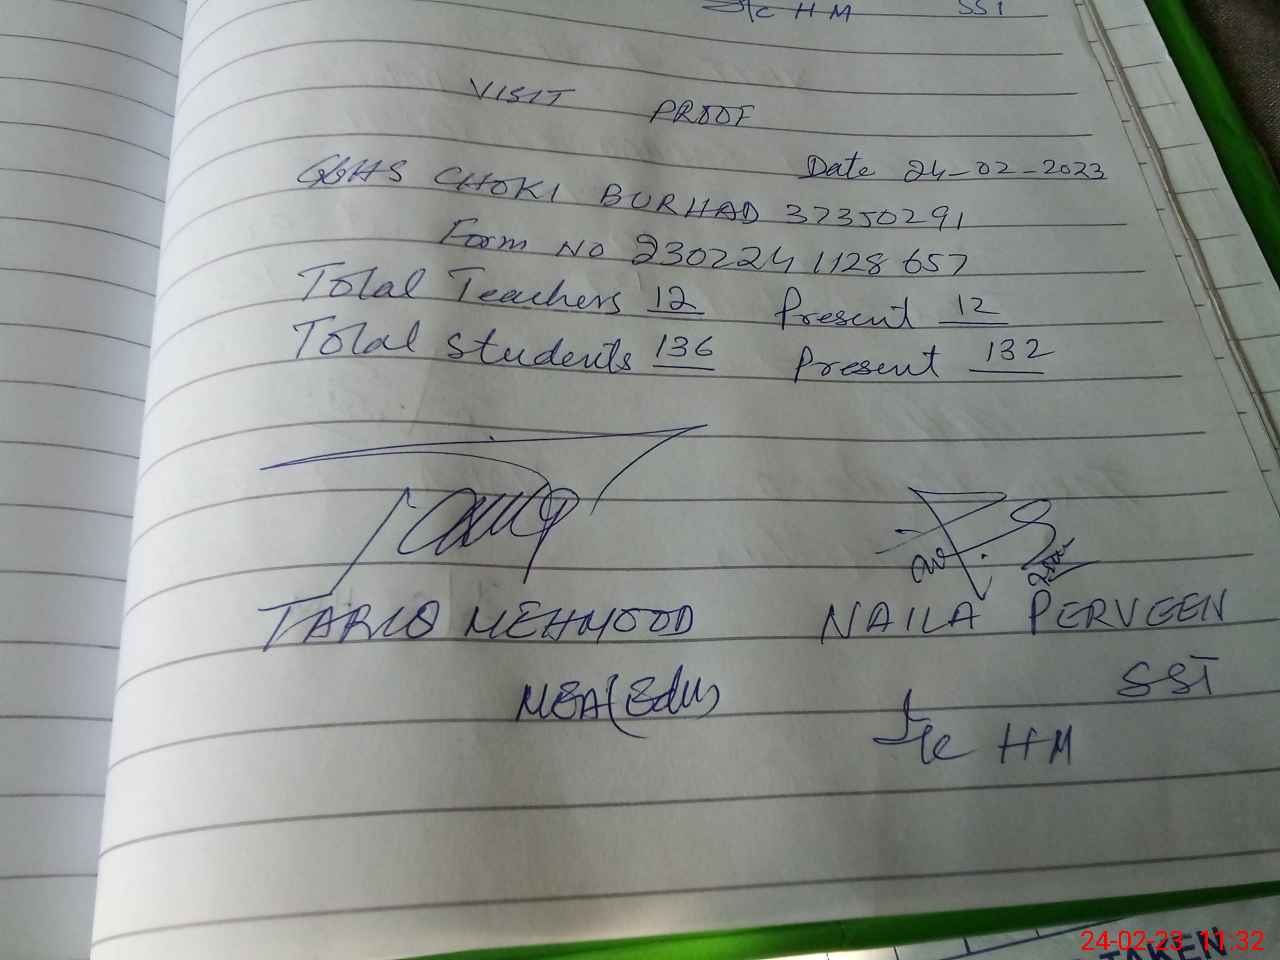 I/c HM SST
VISIT PROOF
Date 24-02-2023
GGHS CHOKI BURHAD 37350291
Form NO 2302241128657
Total Teachers 12 Present 12
Total students 136 Present 132
TARIQ MEHMOOD NAILA PERVEEN
MEA(Edu) SST
I/c HM
24-02-23 11:32
TAKEN